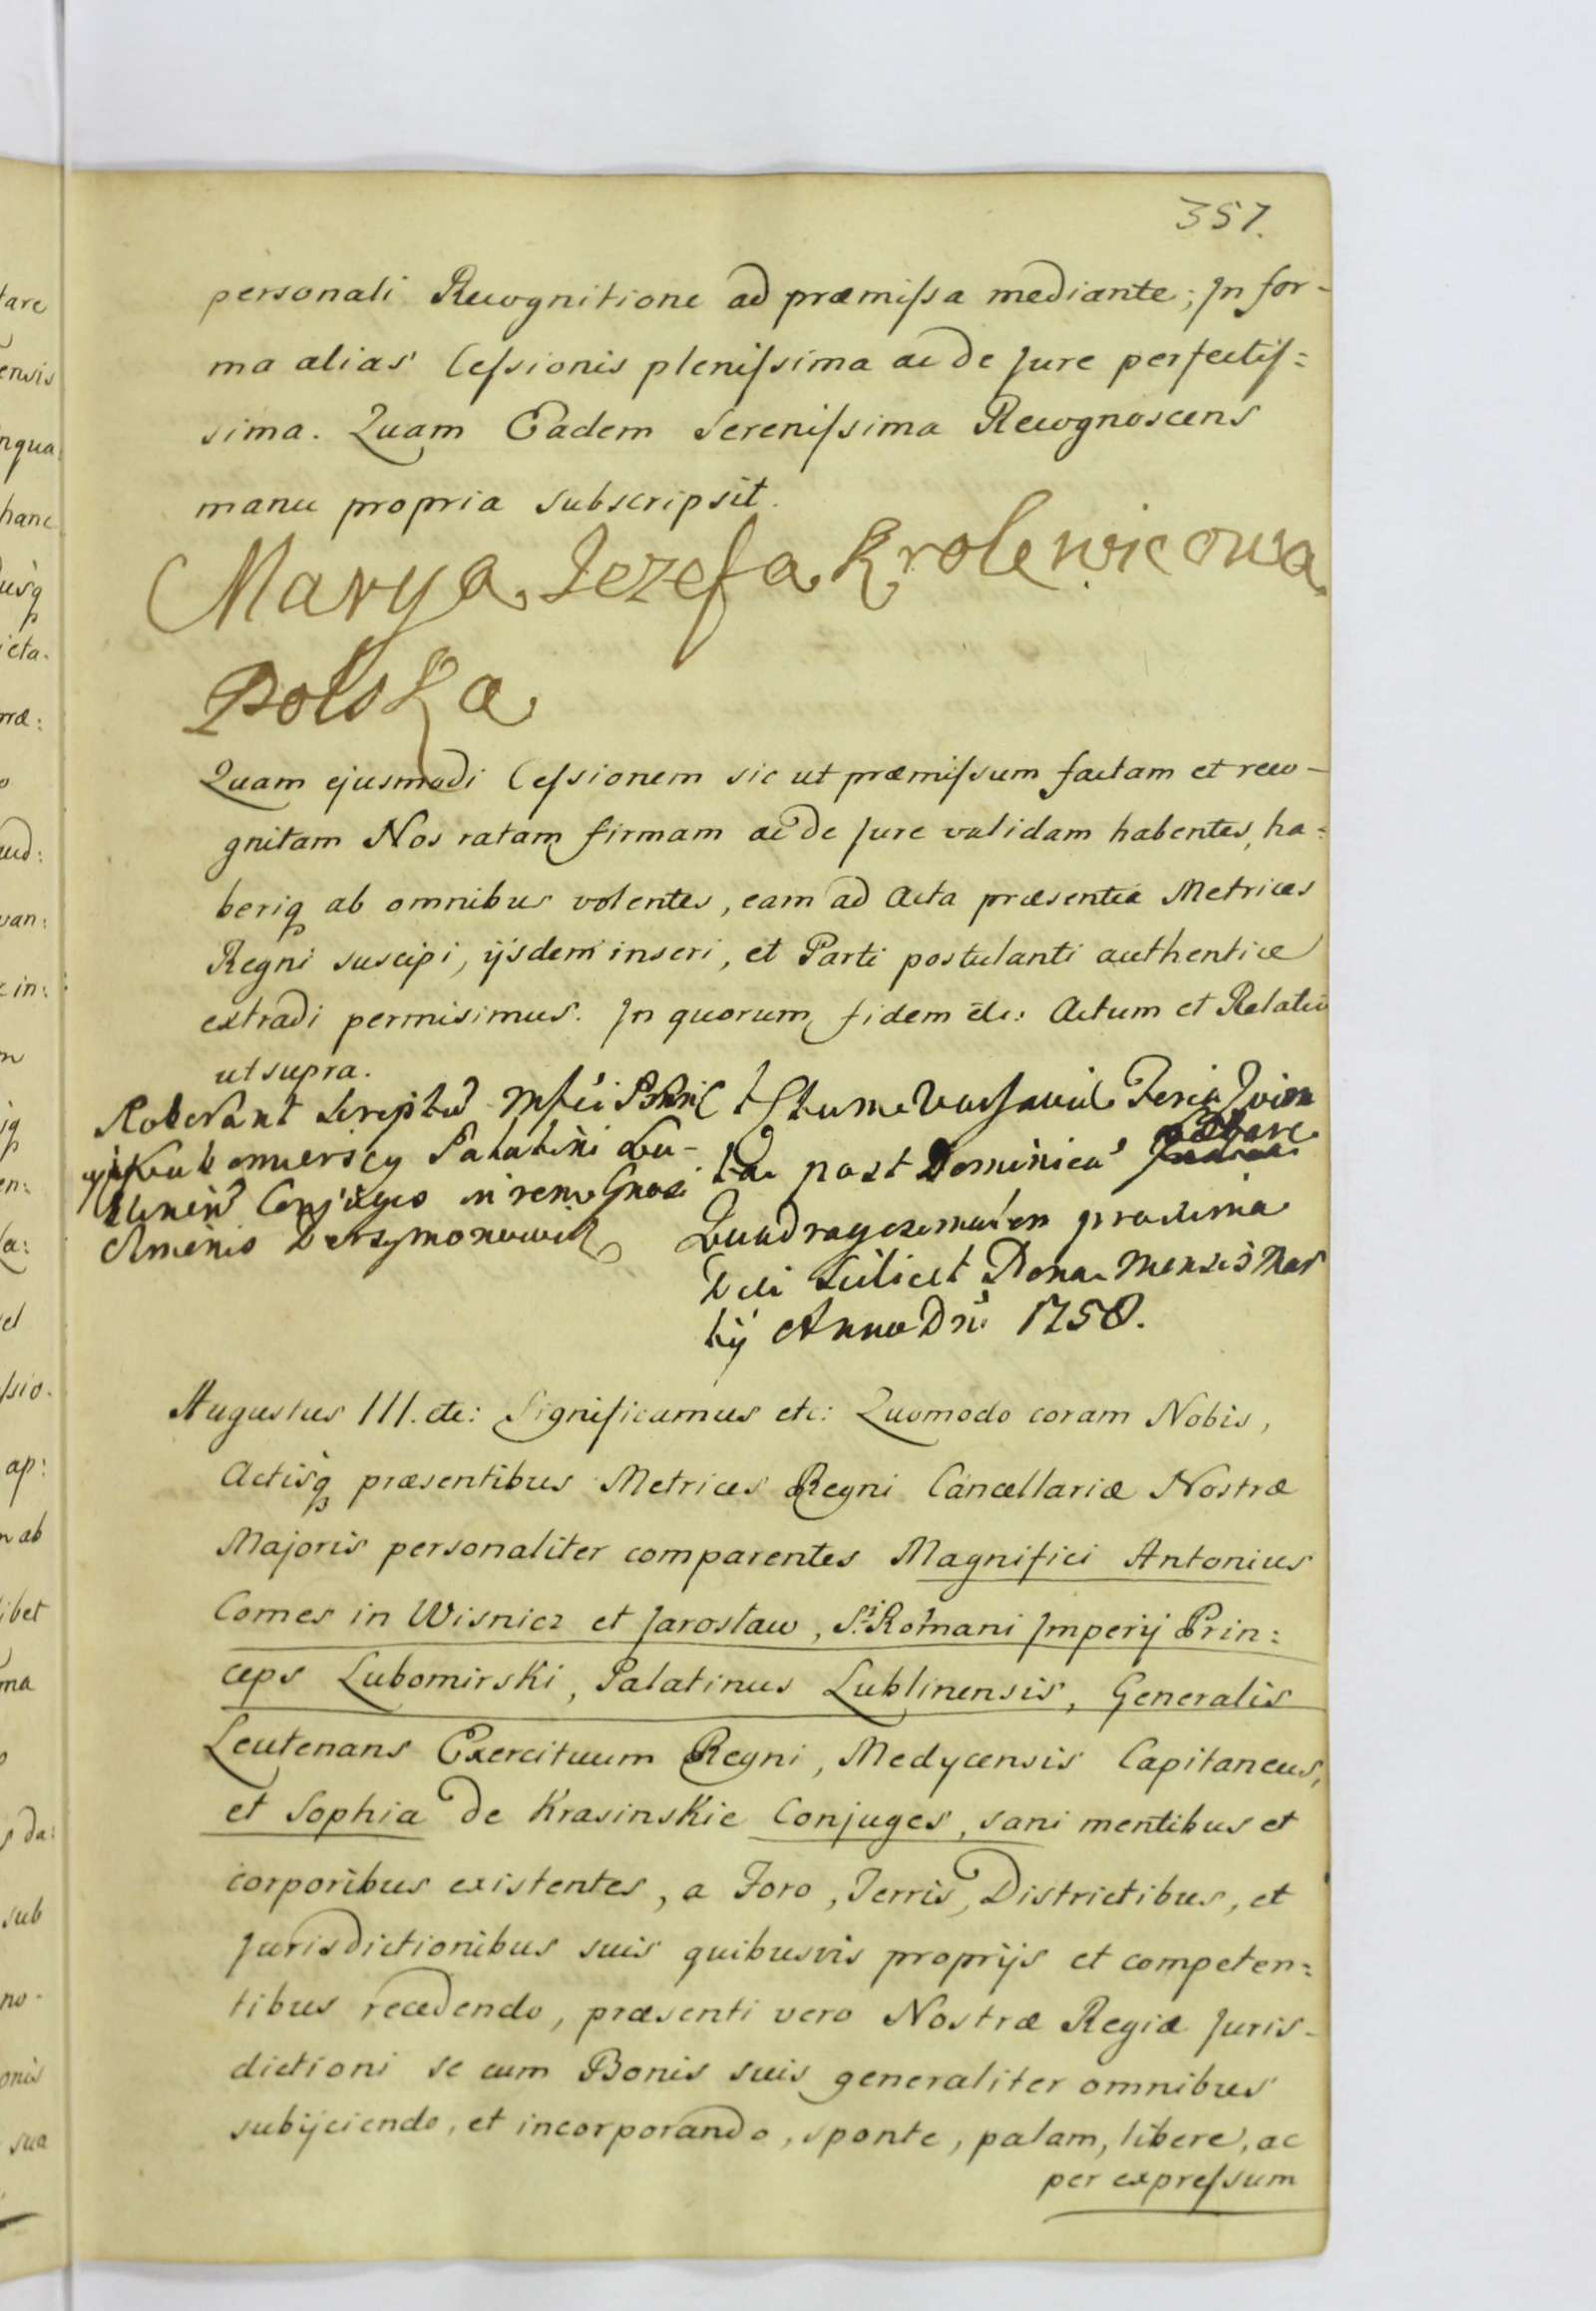 357.
personali Recognitione ad præmissa mediante; Jn for-
ma alias Cessionis plenissima ac de Jure perfectis=
sima. Quam Eadem Serenissima Recognoscens
manu propria subscripsit.
Marya Jozefa Krolewicowa
Polska
Quam ejusmodi Cessionem sic ut præmissum factam et reco-
gnitam Nos ratam firmam ac de Jure validam habentes, ha=
beriq ab omnibus volentes, eam ad Acta præsentia Metrices
Regni suscipi, ijsdem inseri, et Parti postulanti authentice
extradi permisimus. Jn quorum fidem etc: Actum et Relatio
ut supra.
Roborant Script
Palatini Lu-
Conjugu in rem Gnosi
Actum Varsaviæ Feria
ta post Dominicā Lætare
Quadragesimalem proxima
Die Scilicet Nona Mensis Mar
tij Anno Dni 1758.
Augustus III. etc: Significamus etc: Quomodo coram Nobis,
Actisq præsentibus Metrices Regni Cancellariæ Nostræ
Majoris personaliter comparentes Magnifici Antonius
Comes in Wisnicz et Jarosław, S.ri Romani Jmperij Prin=
ceps Lubomirski, Palatinus Lublinensis, Generalis
Leutenans Exercituum Regni, Medycensis Capitaneus,
et Sophia de Krasinskie Conjuges, sani mentibus et
corporibus existentes, a Foro, Terris, Districtibus, et
Jurisdictionibus suis quibusvis proprijs et competen=
tibus recedendo, præsenti vero Nostræ Regiæ Juris-
dictioni se cum Bonis suis generaliter omnibus
subijciendo, et incorporando, sponte, palam, libere, ac
per expressum